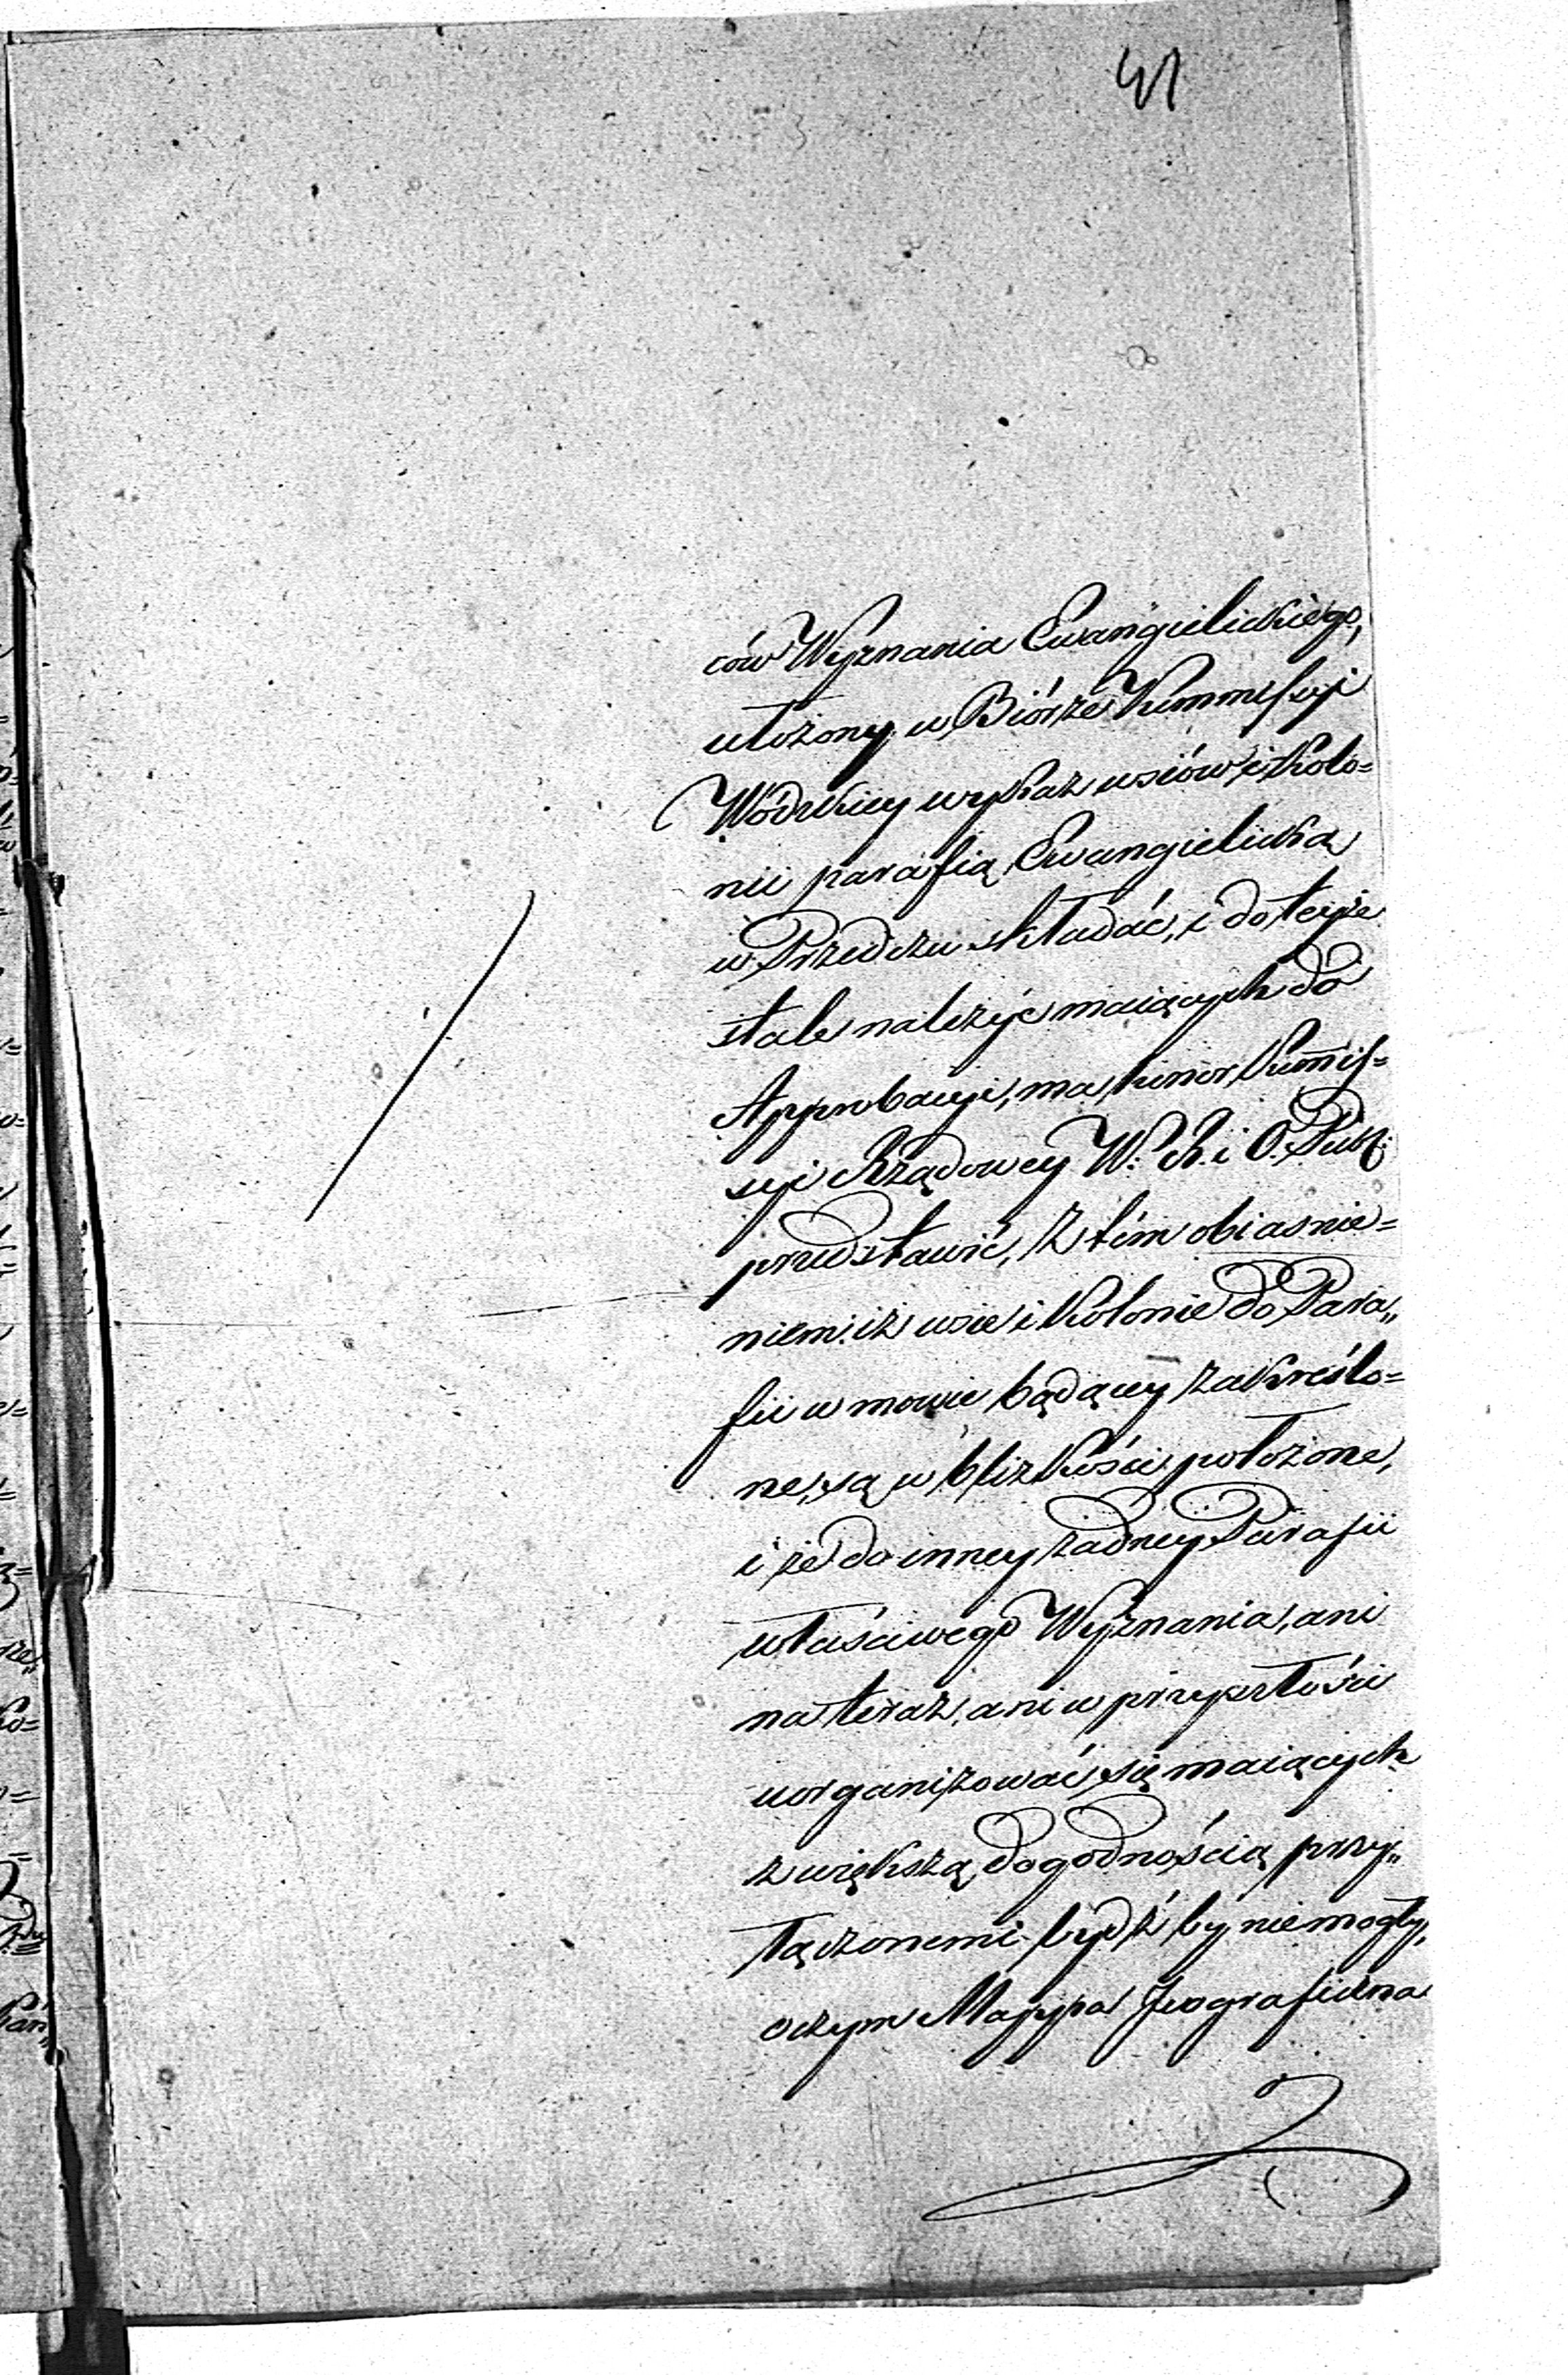 41
ców Wyznania Ewangielickiego,
ułożony w Biórze Kommissyi
Wódzkiey wykaz wsiów i Kolo=
nii parafią Ewangielicką
w Przedczu składać, i do teyże
stale należyć maiących do
Approbacyi, ma honor Kom̄is=
syi Rządowey W. R. i O. Publ:
przedstawić, z tém obiasnie=
niem: iż wsie i Kolonie do Para„
fii w mowie bądącey zakreślo=
ne, są w blizkości położone,
i że do inney żadney Parafii
właściwego Wyznania, ani
na teraz, ani w przyszłości
uorganizować się maiących
z większą dogodnością przy„
łączonemi bydź by niemogły,
o czym Mappa Jeograficzna